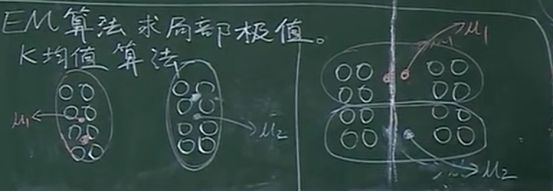 EM算法求局部极值。
K均值算法
μ1
μ2
μ1
μ2